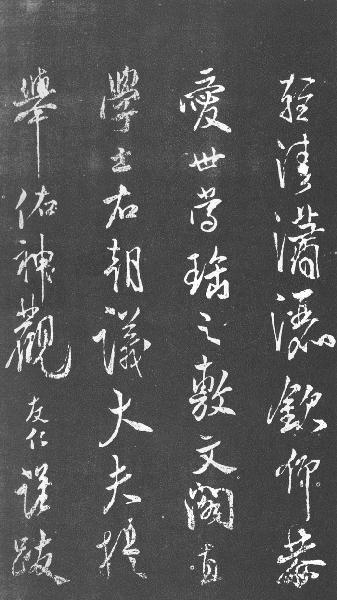 輕清瀟灑欽仰恭
愛世當珤之敷文閣直
學士右朝議大夫提
舉佑神觀友仁謹跋